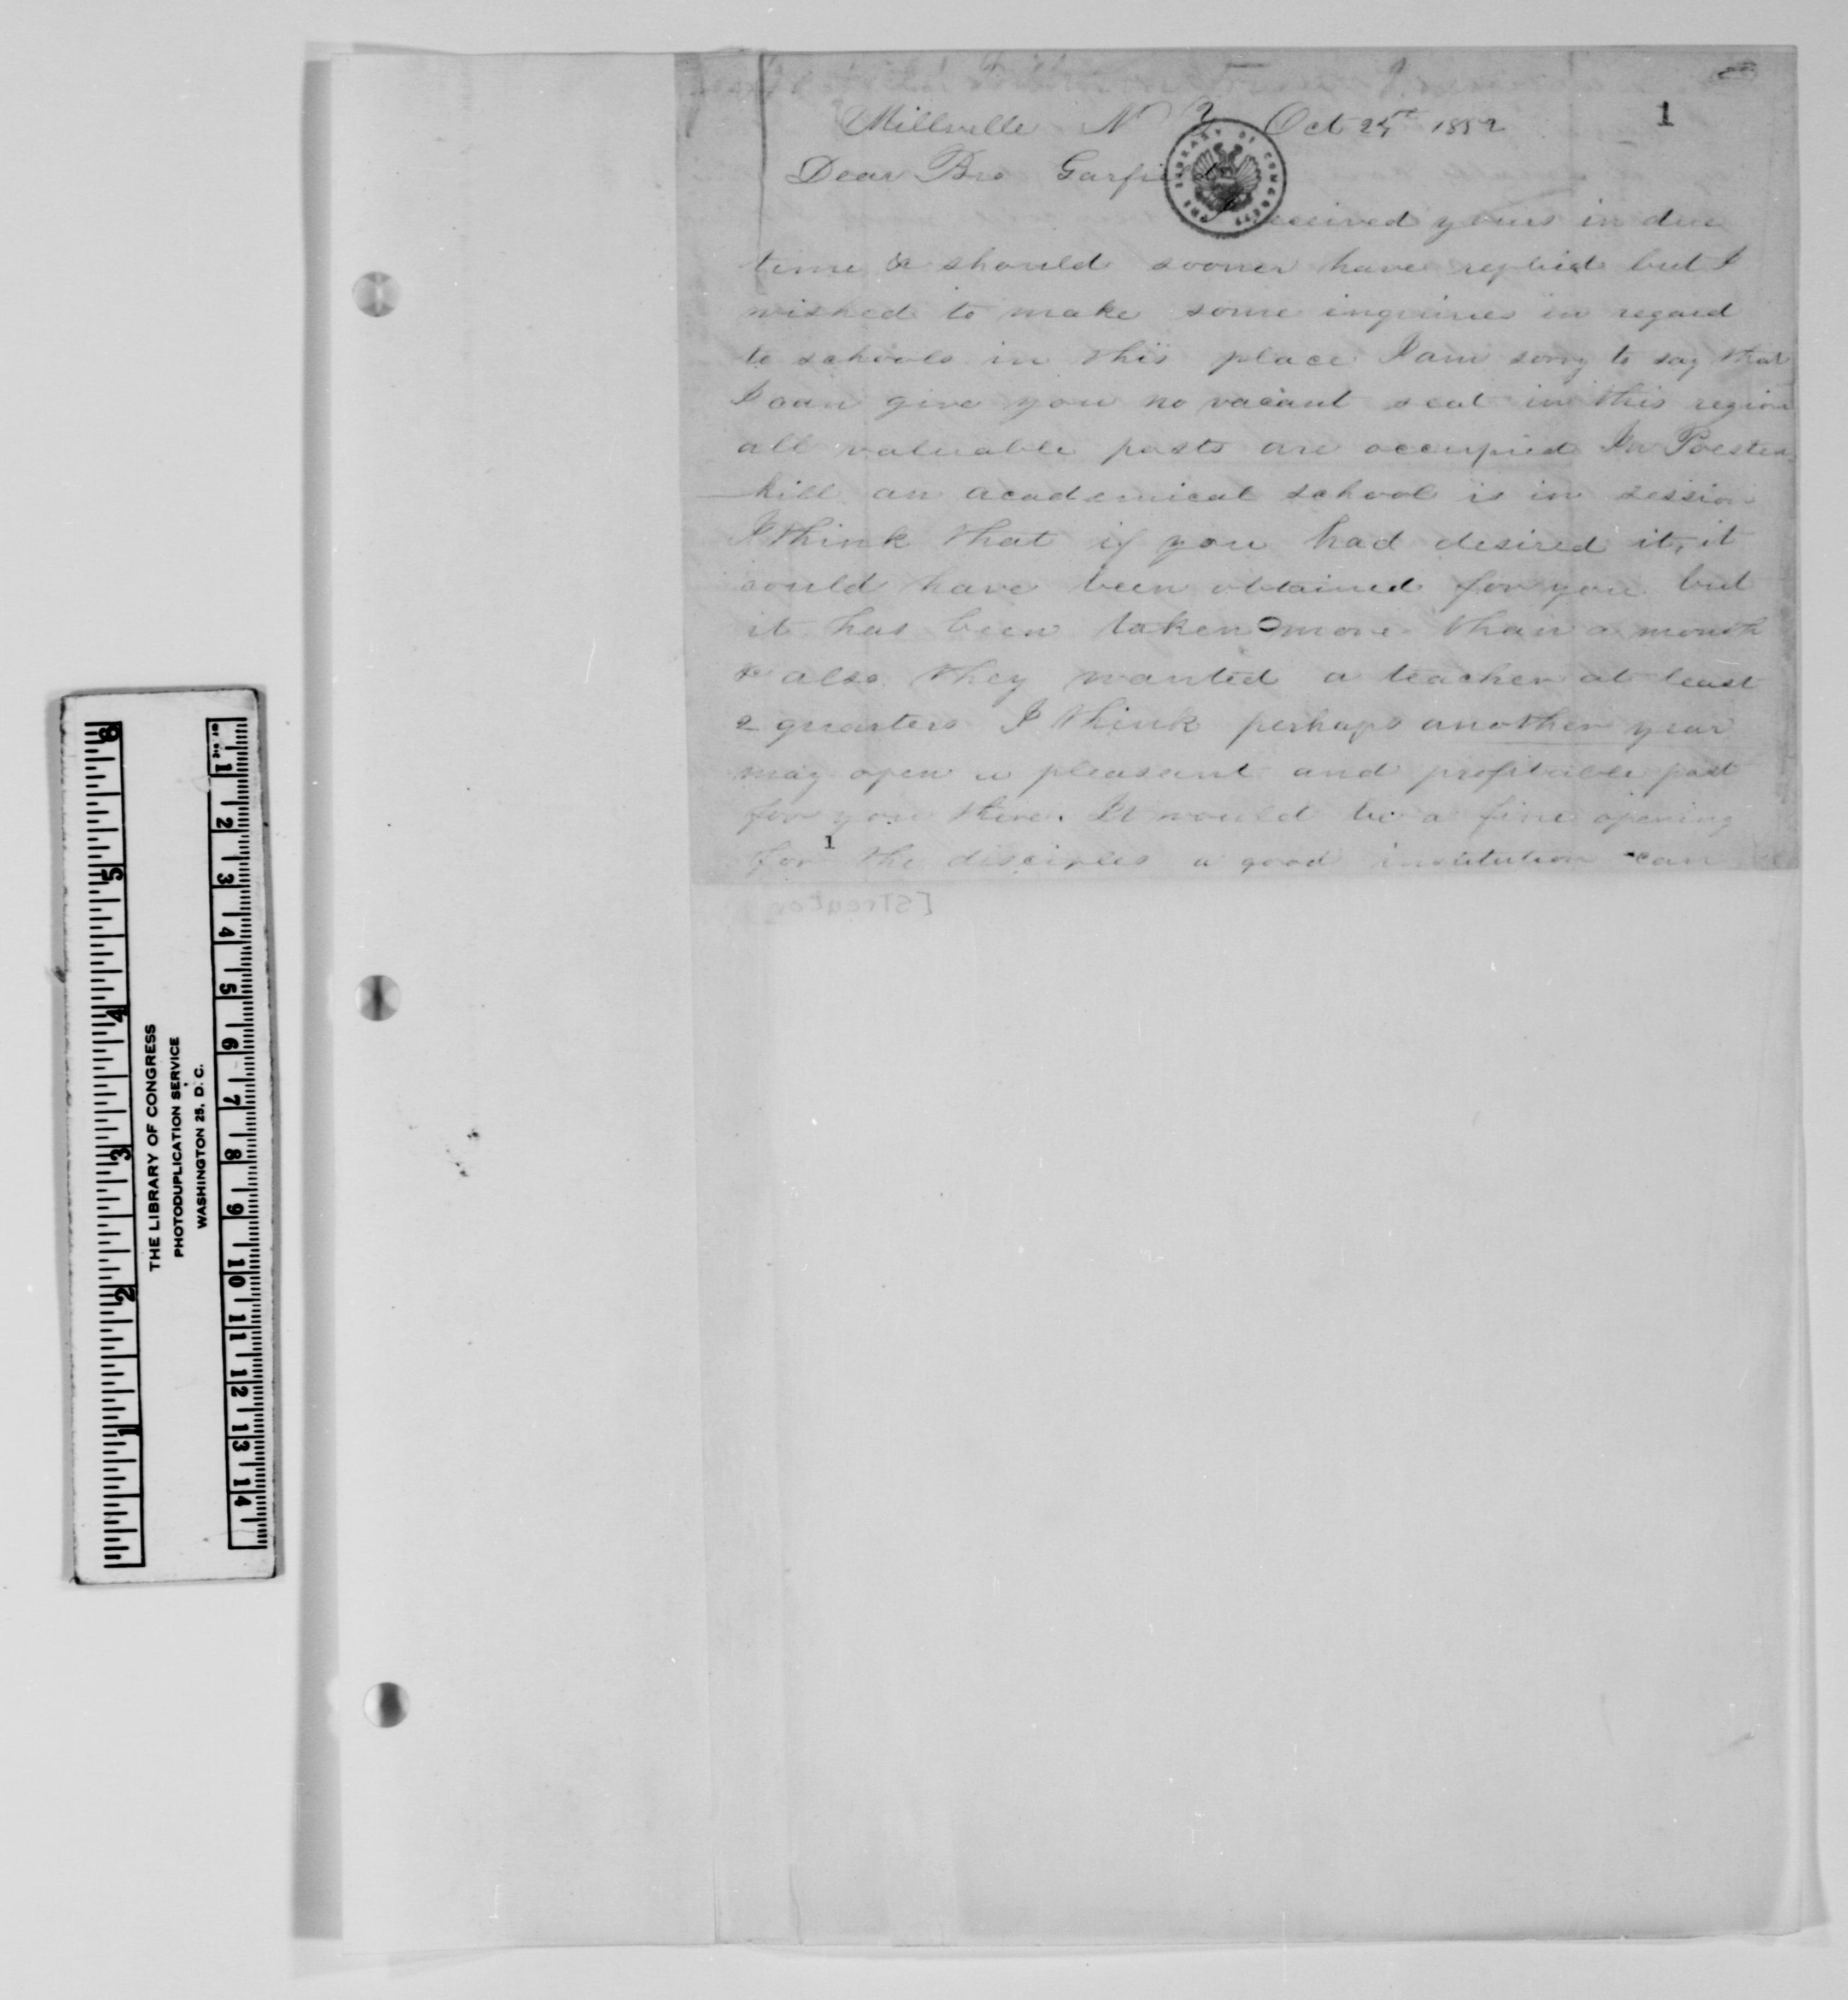 1
Millville N Y Oct 25th 1852
Dear Bro Garfield
I received yours in due
time & should sooner have replied but I
wished to make some inquiries in regard
to schools in this place I am sorry to say that
I can give you no vacant seat in this region
all valuable posts are occupied In Poesten
kill an academical school is in session
I think that if you had desired it, it
could have been obtained for you but
it has been taken more than a month
& also they wanted a teacher at least
2 quarters I think perhaps another year
may open a pleasant and profitable post
for you there. It would be a fine opening
1
for the disciples a good institution can
THE LIBRARY OF CONGRESS
PHOTODUPLICATION SERVICE
WASHINGTON 25, D. C.
6 5 4 3 2 1
1 2 3 4 5 6 7 8 9 10 11 12 13 14